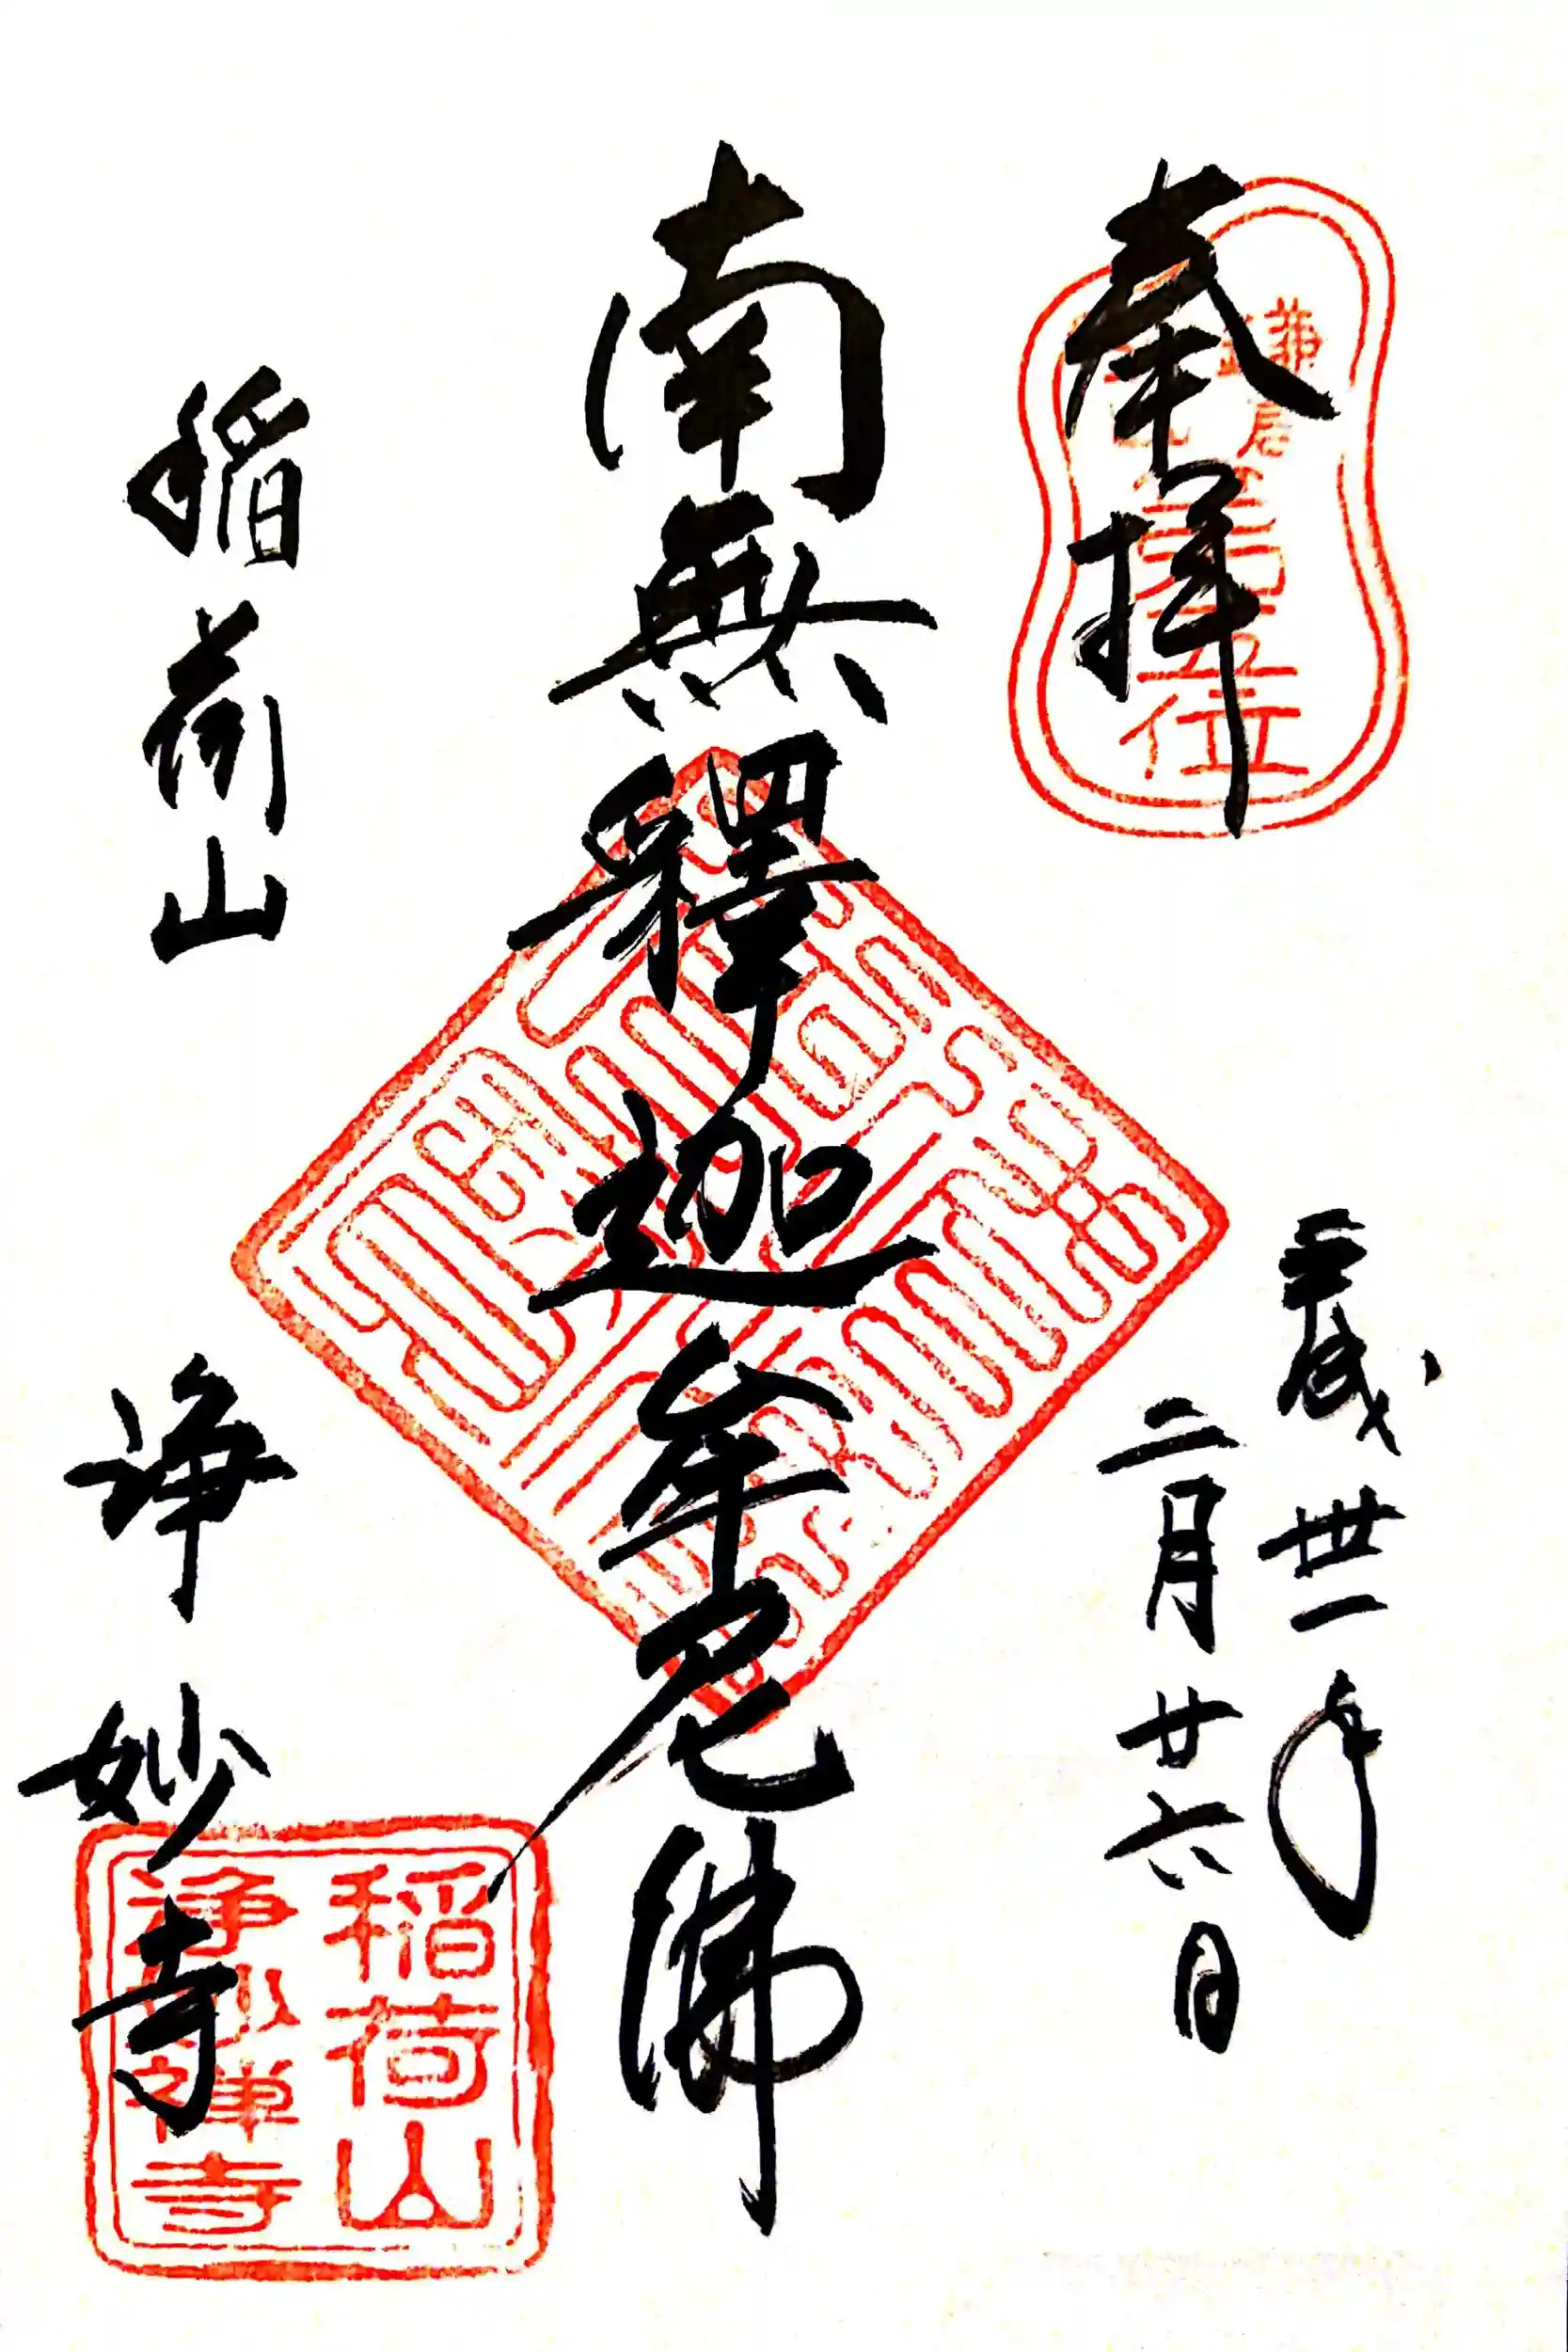 奉拝
平成卅一年
二月廿六日
南無釋迦牟尼佛
稲荷山
浄妙寺
第五位
稲荷山
浄妙禅寺